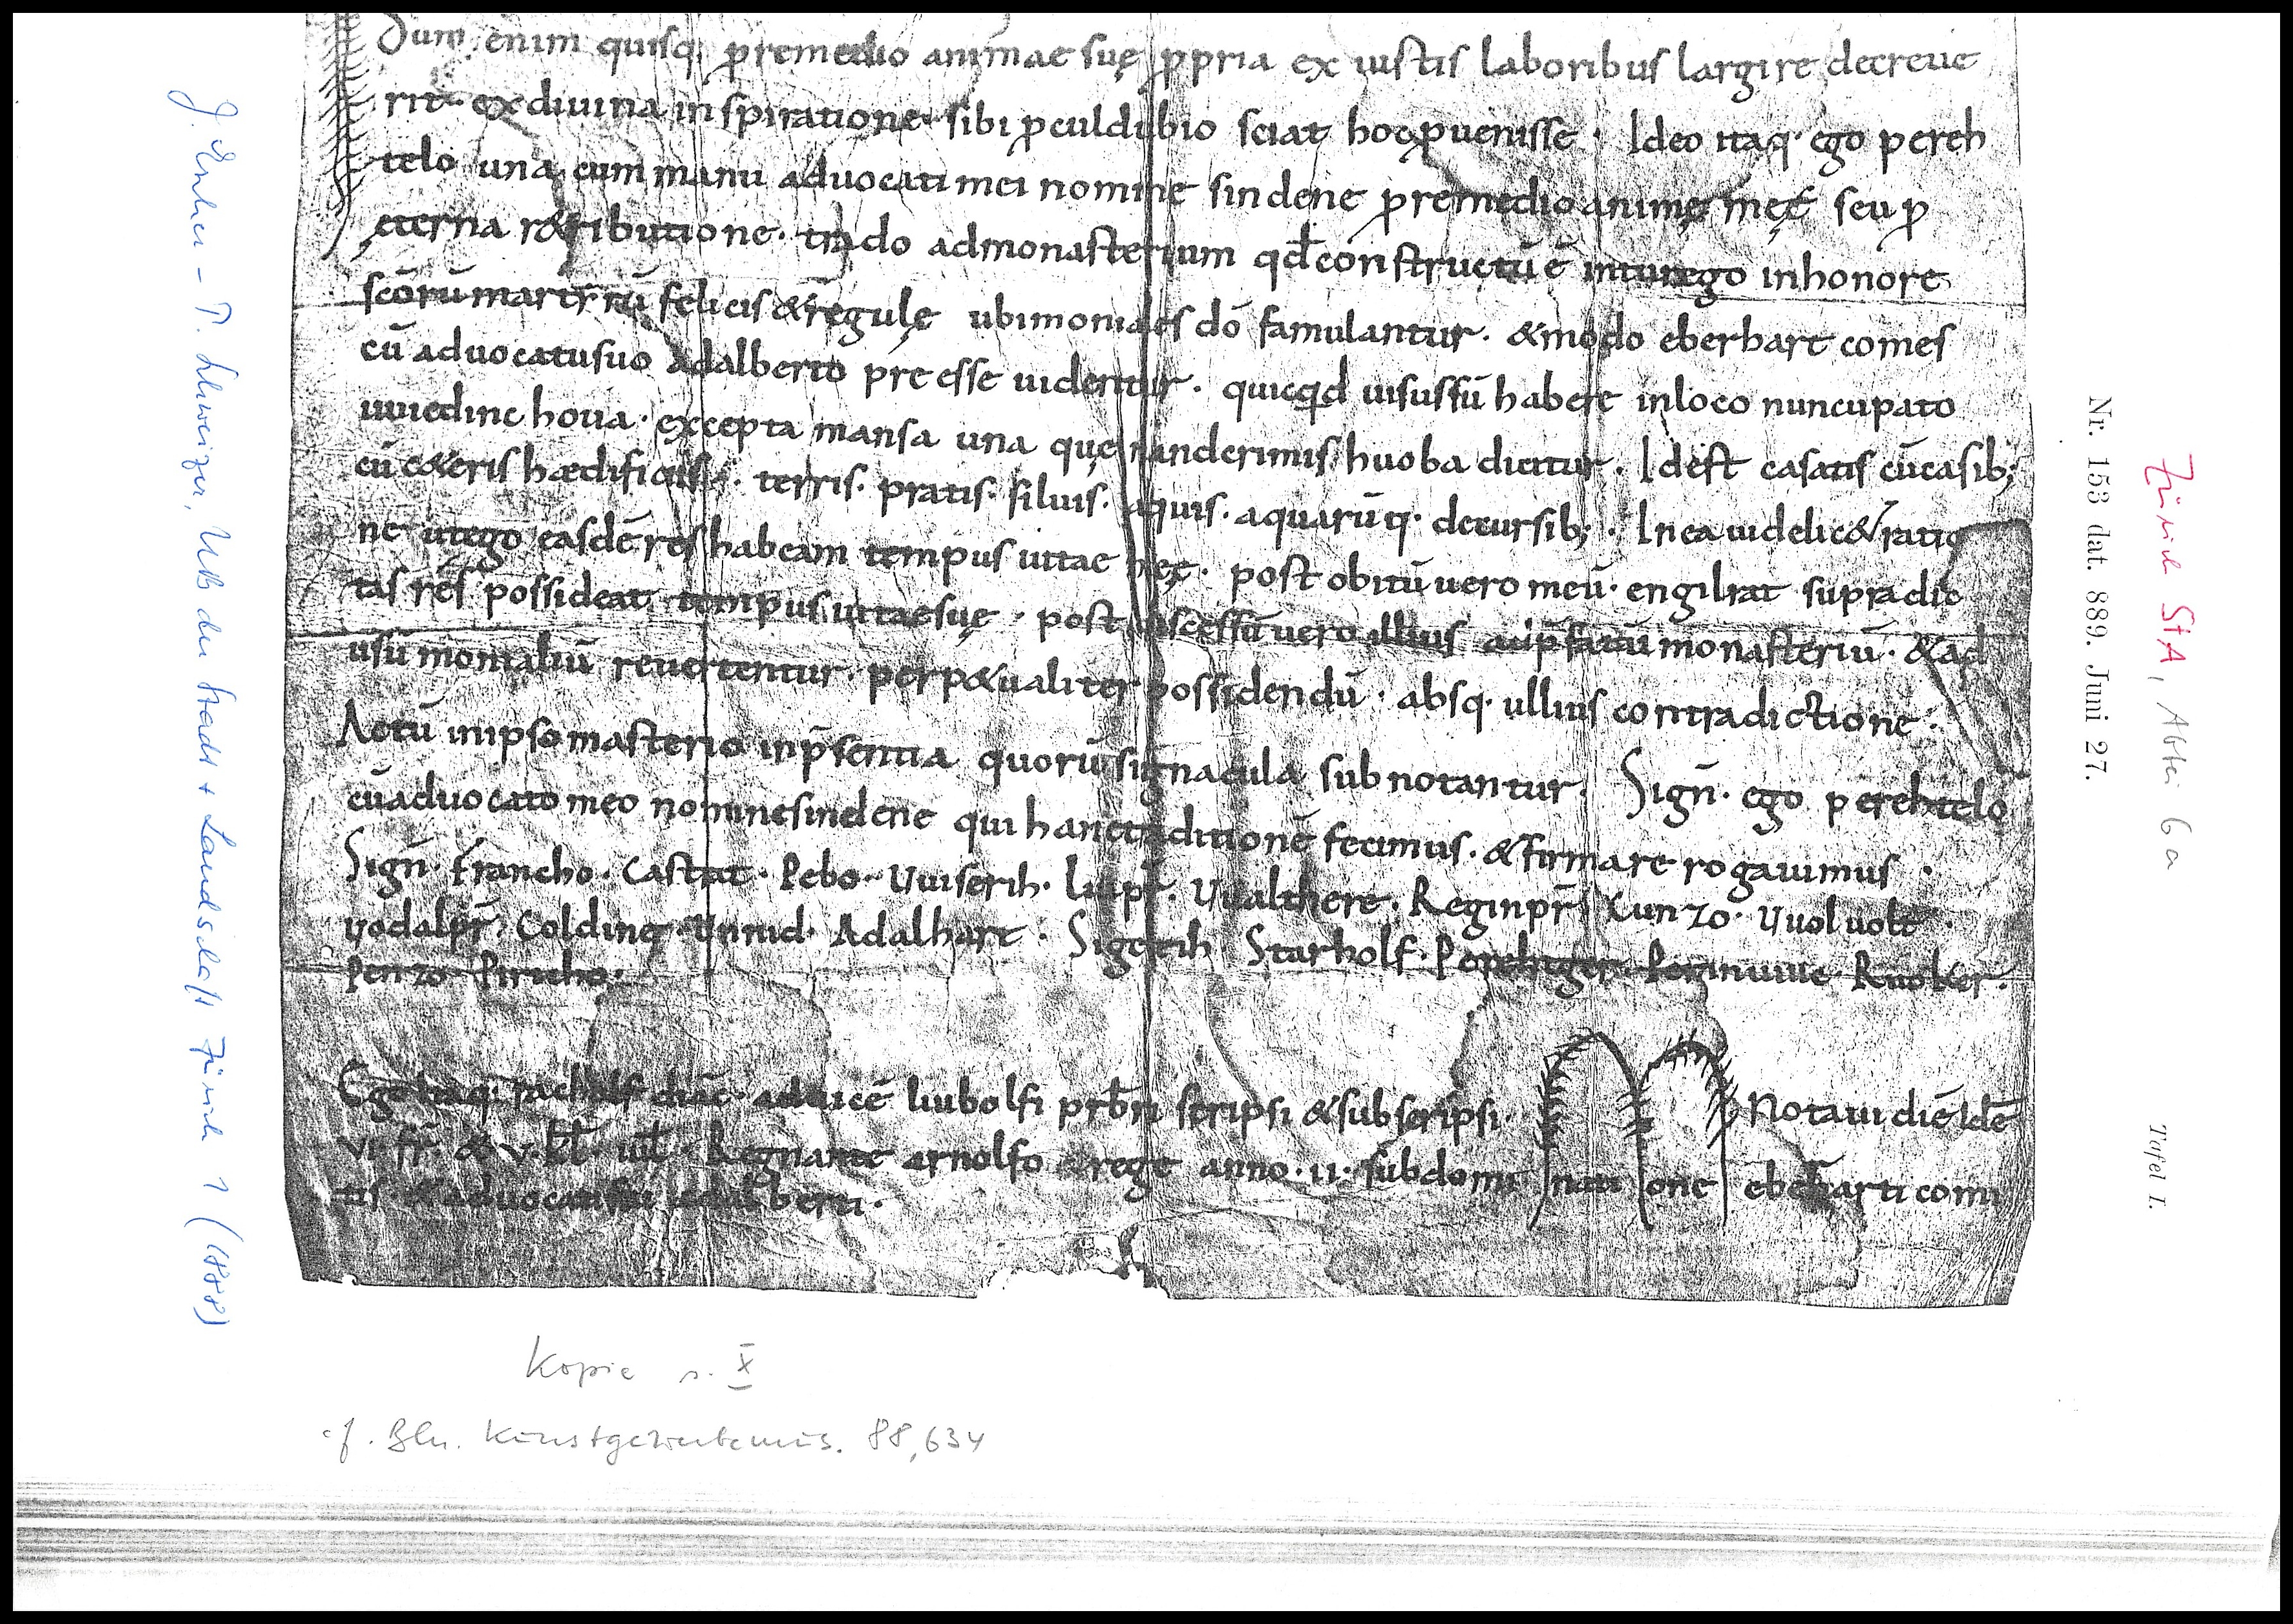 Dum enim quisq; p̱remedio animae suę p̱pria ex iustis laboribus largire decreue
rit· ex diuina inspiratione· sibi p̱culdubio sciat hoc p̱uenisse· Ideo itaq· ego pereh
telo una cum manu aduocati mei nomine sindene p̱remedio animę meę seu p̱
ęterna r&ributione· trado admonasterium qd̄ constructū ē inturego inhonore
scōrū martyrū felicis & regulę ubi moniales dō famulantur· & modo eberhart comes
cū aduocatu suo Adalberto pre esse uidentur· quicqd uisus sū habere inloco nuncupato
uuiedinc houa· excepta mansa una quę nanderimis huoba dicitur· Id est casatis cū casib;
cū c&eris haedificiis· terris· pratis· siluis· aquis· aquarūq· decursib;· In ea uidelic& ratio
ne utego easdē res habeam tempus uitae męę· post obitū uero meū· engilrat supradic
tas res possideat tempus uitae suę· post discessū uero illius ad p̄fatū monasteriū· & ad
usū monialiū reuertentur· perp&ualiter possidendū· absq· ullius contradictione·
Actū in ipso masterio in p̄sentia quorū signacula subnotantur· Sign̄· ego perehtelo
cū aduocato meo nomine sindene qui hanc traditionē fecimus· & firmare rogauimus·
Sign̄· Francho· Castrat· Pebo· Uuiserih· Liupr̄· Uualthere· Reginpr̄· Kunzo· Uuoluolt·
Uodalpr̄· Colding· Unnid· Adalhart· Sigerih Starholf· Reginuuie· Ruoker·
Penzo· Piricho·
Ego itaq· diāc· aduicē liubolfi prb̄ri scripsi & subscripsi· Notaui diē idē
VI· fr̄· & V· kl̄· iul̄· Regnante arnolfo rege anno· II· sub domi nati one eberharti comi
tis· & aduocati sui adalberti·
Nr. 153 dat. 889. Juni 27.
Zürich StA, Abtei 6a
Tafel I.
J. Escher - P. Schweizer, UB der Stadt + Landschaft Zürich 1 (1888)
Kopie s. X
cf. Bln. Kunstgewerbemus. 88,634